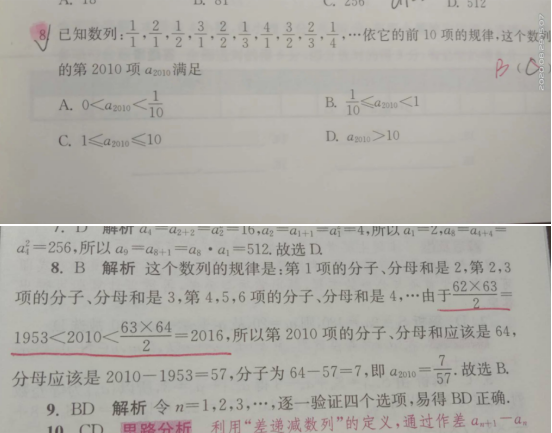 8. 已知数列: 1/1, 2/1, 1/2, 3/1, 2/2, 1/3, 4/1, 3/2, 2/3, 1/4, …依它的前 10 项的规律,这个数列
的第 2010 项 a₂₀₁₀ 满足 B (
A. 0<a₂₀₁₀<1/10 B. 1/10≤a₂₀₁₀<1
C. 1≤a₂₀₁₀≤10 D. a₂₀₁₀>10
7. D 解析 a₄=a₂₊₂=a₂²=16,a₂=a₁₊₁=a₁²=4,所以 a₁=2,a₈=a₄₊₄=
a₄²=256,所以 a₉=a₈₊₁=a₈·a₁=512. 故选 D.
8. B 解析 这个数列的规律是:第 1 项的分子、分母和是 2,第 2,3
项的分子、分母和是 3,第 4,5,6 项的分子、分母和是 4,…由于 62×63/2=
1953<2010<63×64/2=2016,所以第 2010 项的分子、分母和应该是 64,
分母应该是 2010-1953=57,分子为 64-57=7,即 a₂₀₁₀=7/57. 故选 B.
9. BD 解析 令 n=1,2,3,…,逐一验证四个选项,易得 BD 正确.
10. CD 思路分析 利用“差递减数列”的定义,通过作差 aₙ₊₁-aₙ